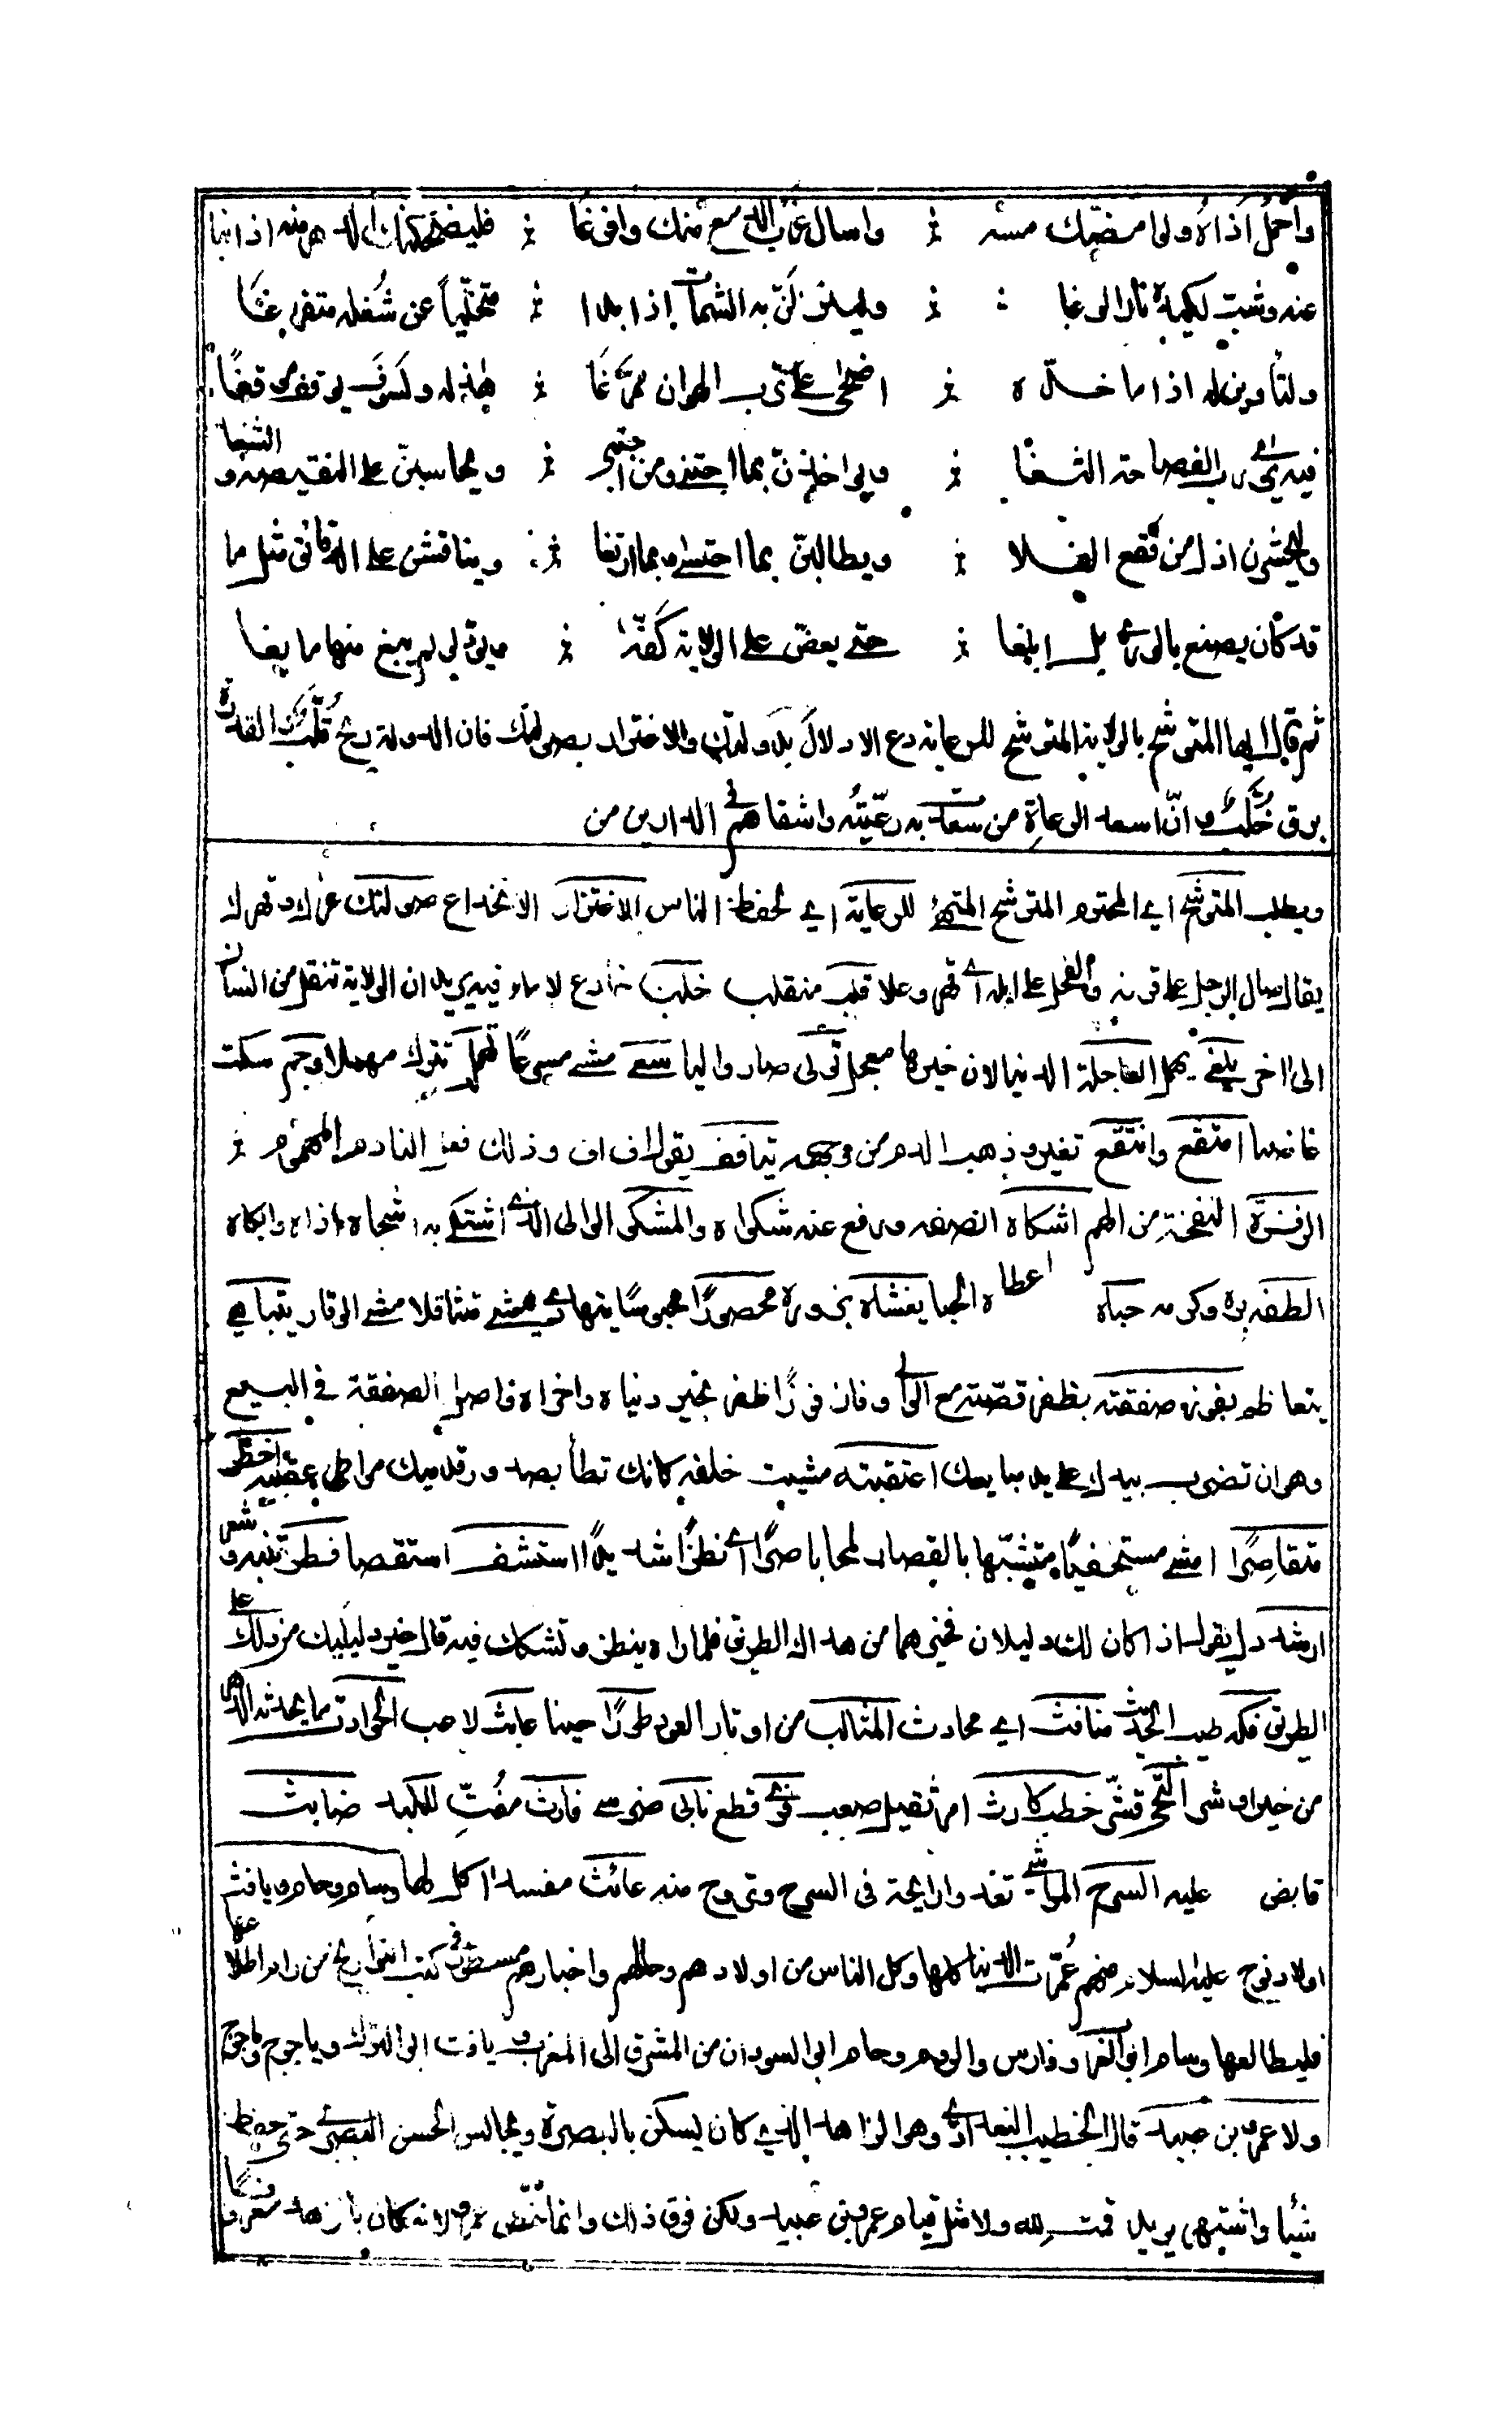 واحمل اذاه ولو امضّك مسه واسال غرب الدمع منك وافرغا فليضحكنك الدهر منه اذا نبا
عنه وشب لكيده نار الوغا ولينزلنّ به الشمات اذا بدا متخلّياً عن شُغله متفرغا
ولتأوين له اذا ما خدّه اضحى على ترب الهوان ممرّغا هذا له ولسوف يوقف موقفًا
فيه يرى رب الفصاحة الثغا ويواخذنّ بما اجتنى ومن اجتبى ويحاسبنّ على النقيصة والشغا
وليحشرن اذل من فقع الفلا ويطالبنّ بما احتسى وبما ارتغا ويناقشن على الدقائق مثل ما
قد كان يصنع بالورى بل ابلغا حتى يعضّ على الولاية كفّه ويودّ لو لم يبغ منها ما بغا
ثم قال ايها المتوشح بالولاية المترشح للرعاية دع الادلال بدولتك والاغترار بصولتك فان الدولة ريح قُلّب والقدرة
برق خُلّب وانّ اسعد الرعاة من سعدت به رعيّته واشقاهم في الدارين من
ويطلب المتوشح اي المحتزم المترشح المتهيئ للرعاية اي لحفظ الناس الاغترار الانخداع صولتك عزك وقهرك
يقال صال الرجل على قرنه والفحل على ابله اي قهر وعلا قلب منقلب خلب خادع لا ماء فيه يريد ان الولاية تنقل من انسان
الى اخر يلغى يهمل العاجلة الدنيا لان خيرها معجل تولى صار واليا سعى مشى مسرعاً تهمل تترك مهملا وجم سكت
غائصا امتقع وانتقع تغير وذهب الدم من وجهه يتافف يقول اف اف وذلك فعل النادم المهموم
الزفرة النفخة من الهم اشكاه انصفه ورفع عنه شكواه والمشكى الوالى الذى اشتكى به اشجاه اذاه وابكاه
الطفه بره وكرمه حباه اعطاه الحبا يغشاه يزوره محصورًا محبوسًا يتهادى يمشى متثاقلا مشى الوقار يتباهى
يتعاظم بفوز صفقته بظفر قصّته مع الوالى وفاز فوزًا ظفر بخير دنياه واخراه واصل الصفقة فى البيع
وهو ان تضرب بيدك على يد مبايعك اعتقبته مشيت خلفه كانك تطأ بصدور قدميك مواطى عقبيه اخطو
متقاصرًا امشى مستخفيًا متشبّها بالقصار لمحا باصرًا اى نظرًا شديدًا استشف استقصا فطن تنبه وشعر
ارشد دل يقول اذا كان لك دليلان فخيرهما من هداك الطريق فلما راه ينظر وتشكك فيه قال خير دليليك من دلك على
الطريق فكه طيب الحديث منافث اى محادث المثالب من اوتار العود طورًا حينا عابث لاعب الحوادث ما يحدثه الدهر
من خير او شر التحى قشّر خطب كارث امر ثقيل صعب فرى قطع نابى ضرسى فارث مفُتّ للكبد ضابث
قابض عليه السرح المواشى تغدو الرايحة فى السرح وتروح منه عائث مفسد اكل لها وسام وحام ويافث
اولاد نوح عليه السلام منهم عُمّرت الدنيا كلها وكل الناس من اولادهم وحالهم واخبارهم مسطور فى كتب التواريخ من راد اطلاعها
فليطالعها وسام ابو العرب وفارس والروم وحام ابو السودان من المشرق الى المغرب ويافث ابو الترك وياجوج وماجوج
ولا عمرو بن عبيد قال الخطيب البغدادى وهو الزاهد الذى كان يسكن بالبصرة ويجالس الحسن البصرى حتى حفظ
شيئا واشتهر يريد قمت لله ولا مثل قيام عمرو بن عبيد ولكن فوق ذلك وانما خصّ عمرو لانه كان بالزهد معروفًا